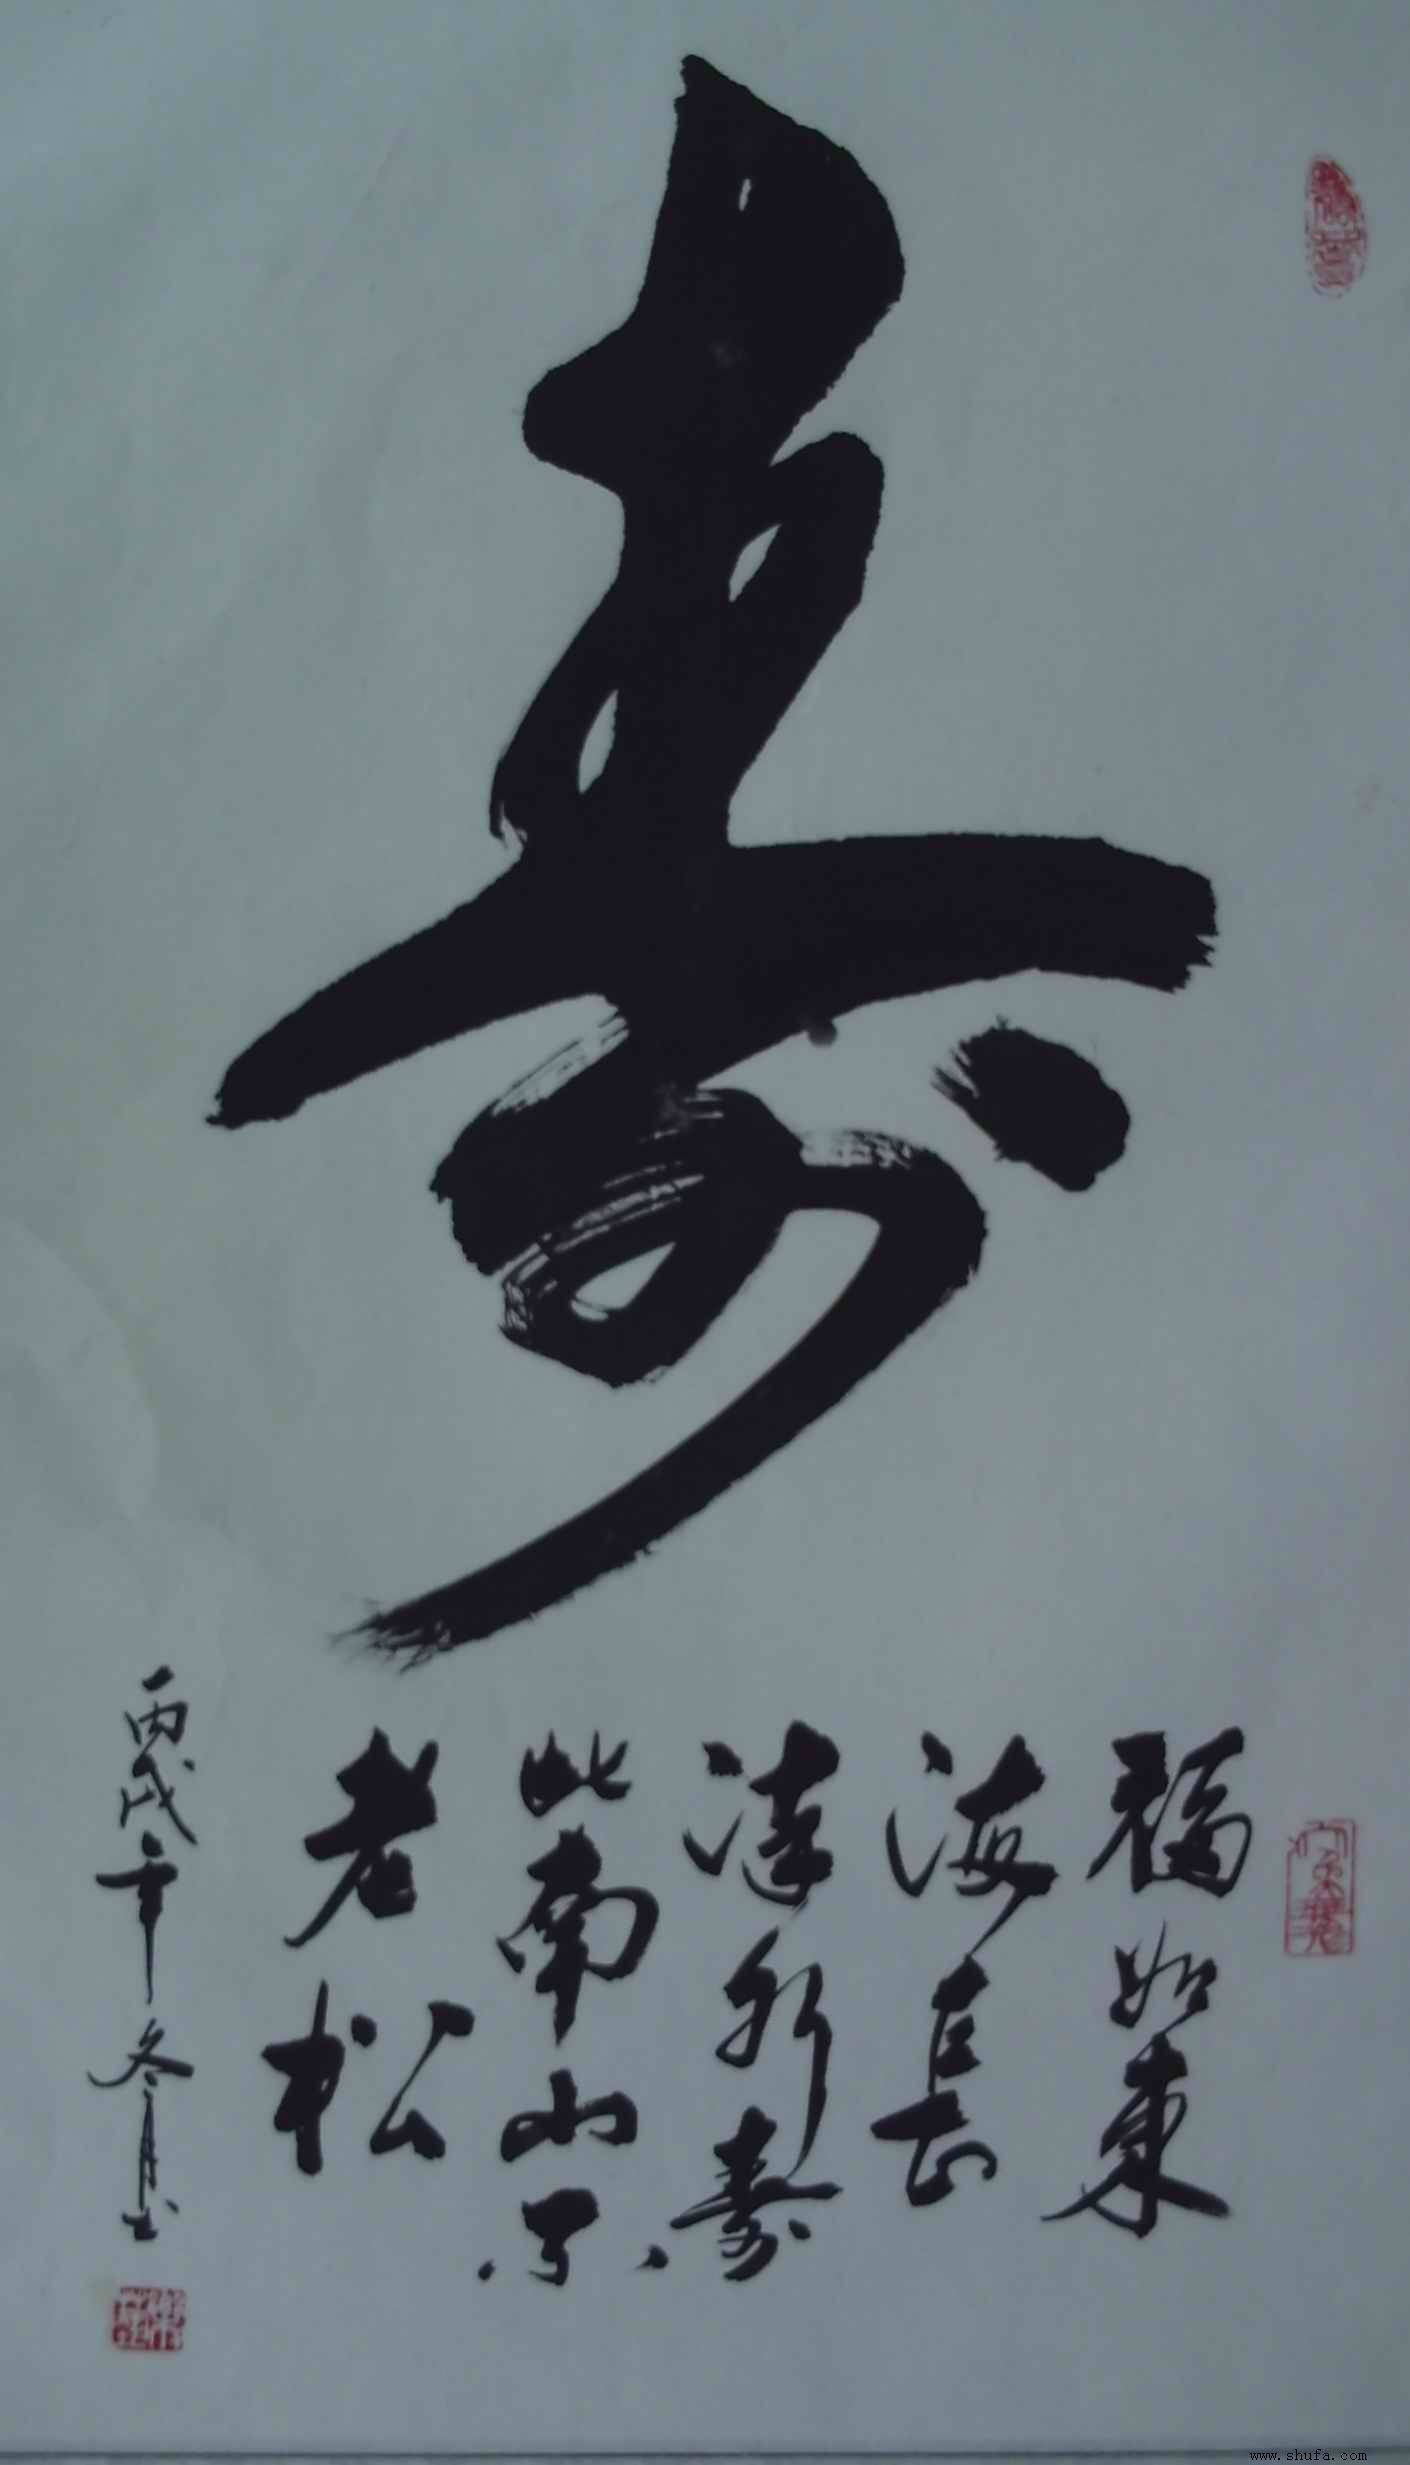 寿
福如東
海長
流水寿
比南山不
老松
丙戌年冬月书
www.shufa.com